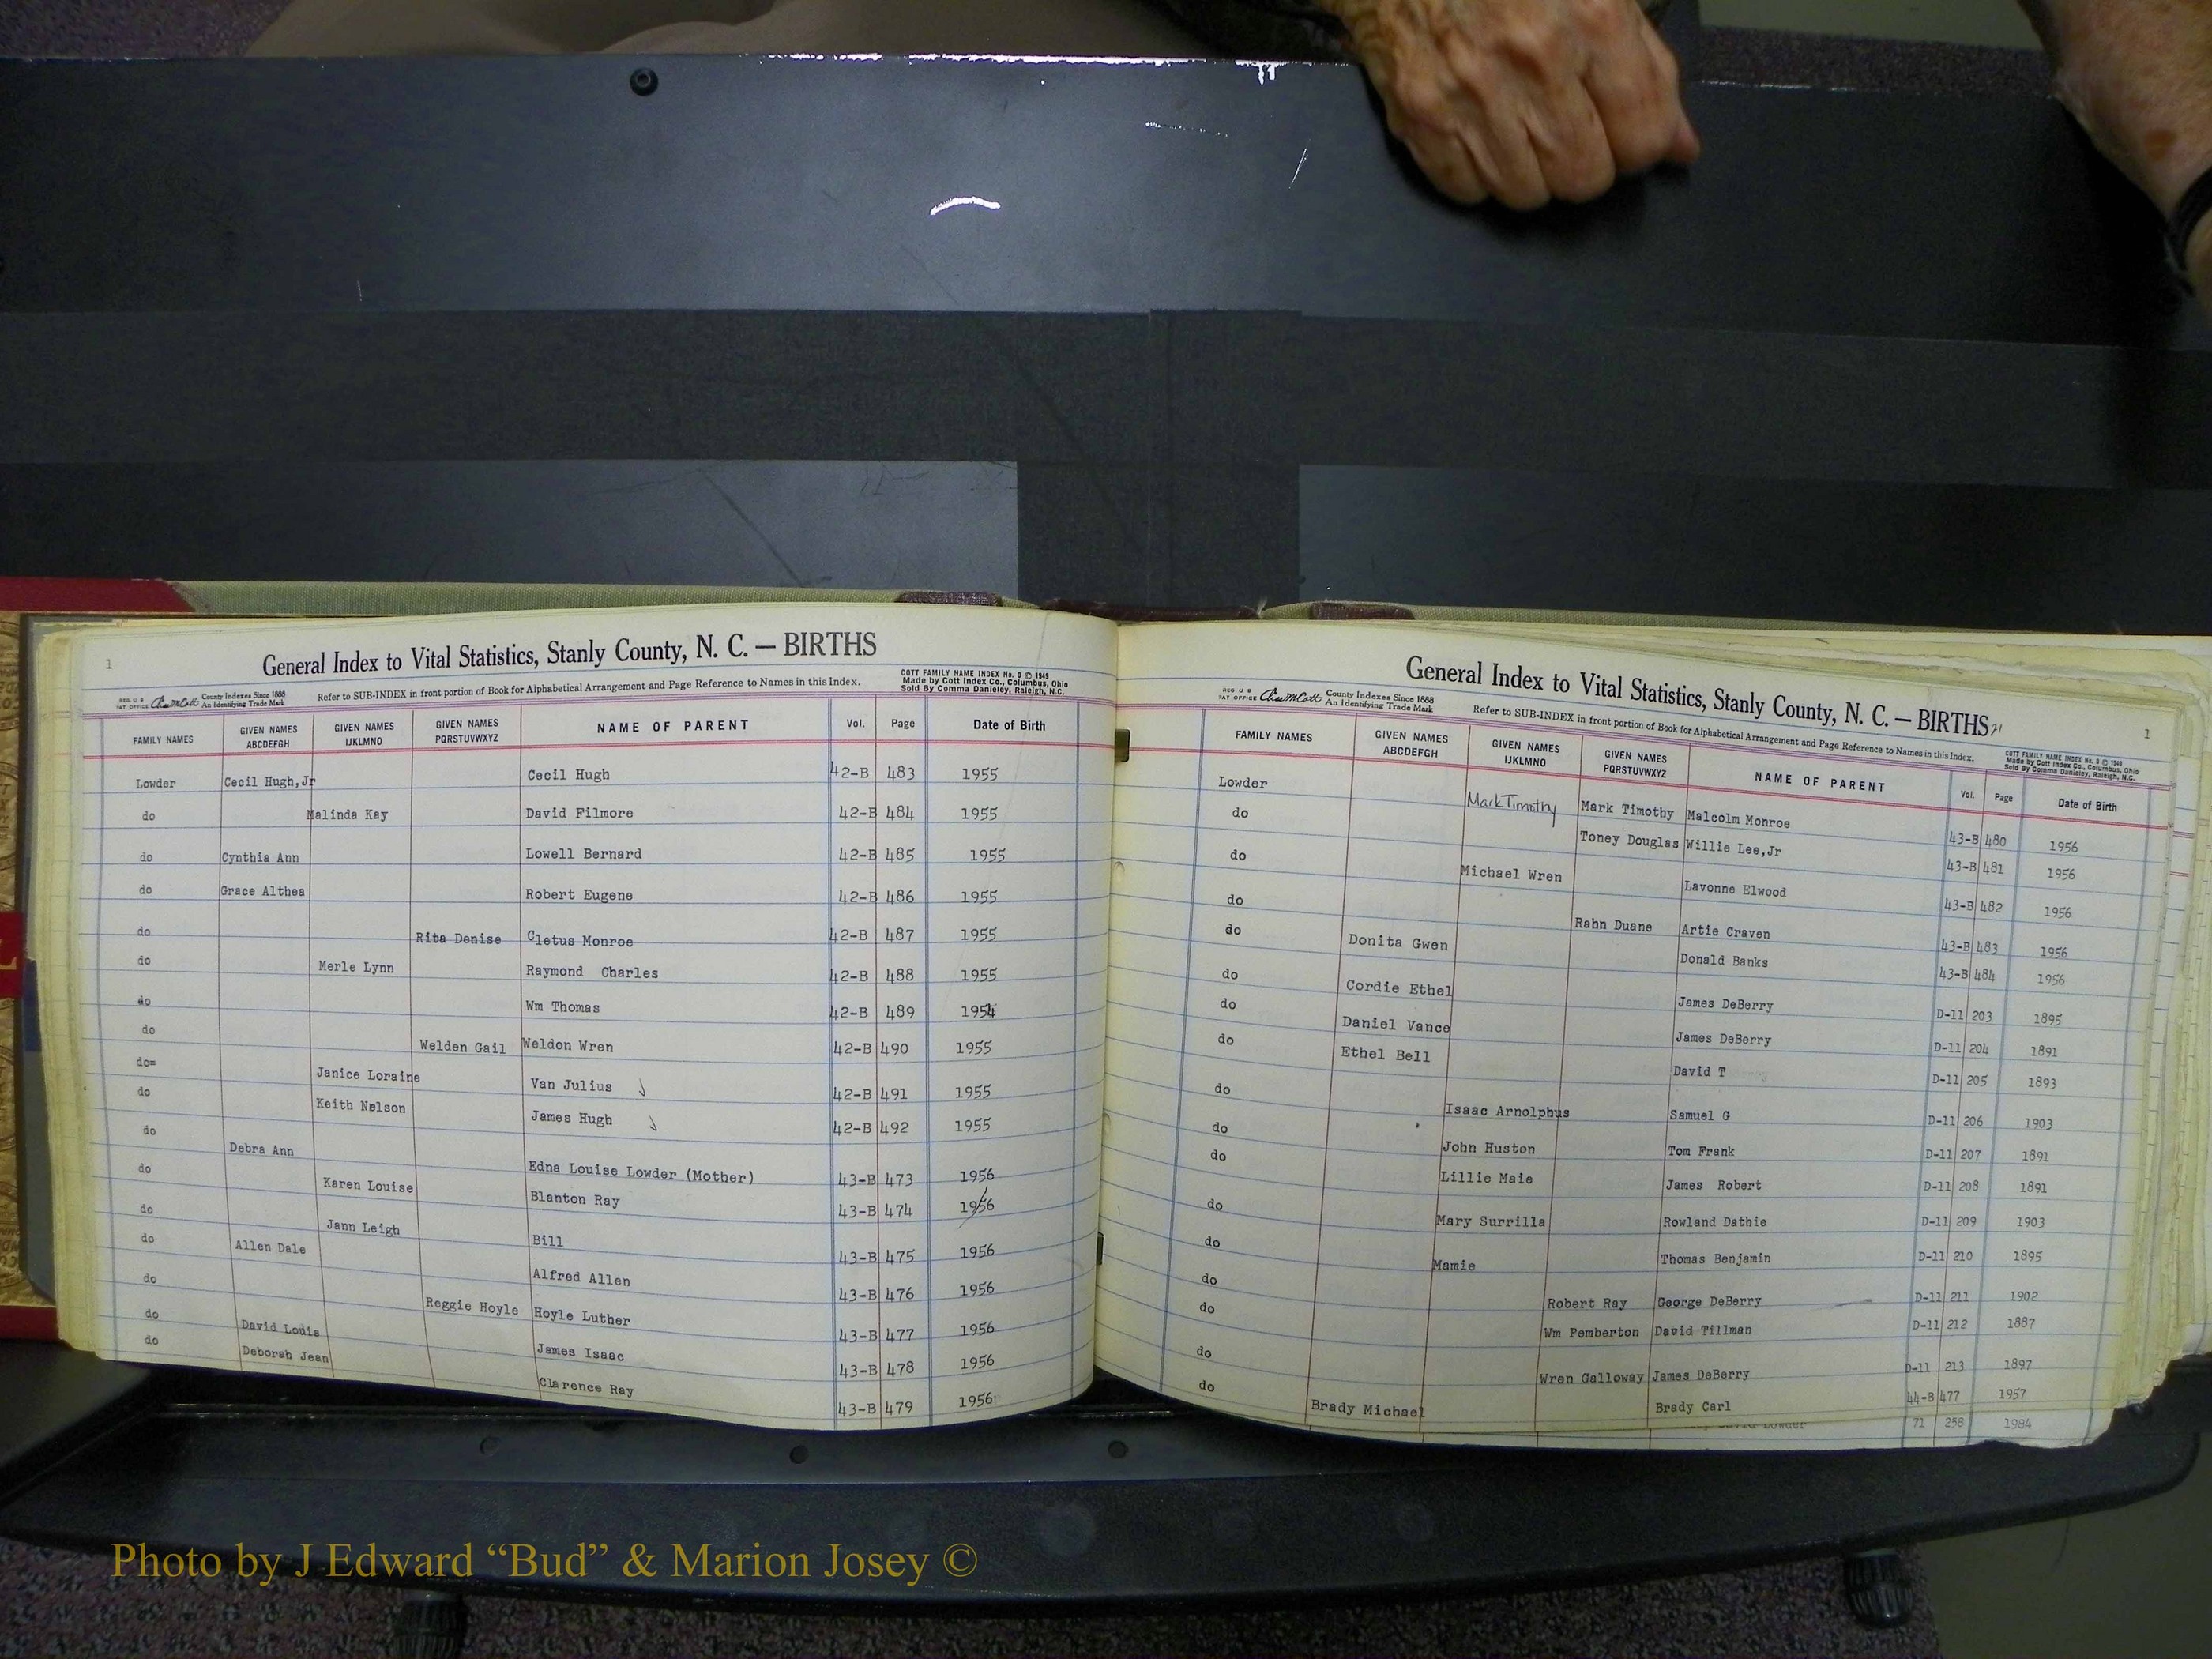 1
General Index to Vital Statistics, Stanly County, N. C. — BIRTHS
REG. U S PAT OFFICE County Indexes Since 1888 An Identifying Trade Mark
Refer to SUB-INDEX in front portion of Book for Alphabetical Arrangement and Page Reference to Names in this Index.
COTT FAMILY NAME INDEX No. 0 © 1949
Made by Cott Index Co., Columbus, Ohio
Sold By Comma Danieley, Raleigh, N.C.
FAMILY NAMES GIVEN NAMES ABCDEFGH GIVEN NAMES IJKLMNO GIVEN NAMES PQRSTUVWXYZ NAME OF PARENT Vol. Page Date of Birth
Lowder Cecil Hugh,Jr Cecil Hugh 42-B 483 1955
do Malinda Kay David Filmore 42-B 484 1955
do Cynthia Ann Lowell Bernard 42-B 485 1955
do Grace Althea Robert Eugene 42-B 486 1955
do Rita Denise Cletus Monroe 42-B 487 1955
do Merle Lynn Raymond Charles 42-B 488 1955
do Wm Thomas 42-B 489 1954
do Welden Gail Weldon Wren 42-B 490 1955
do= Janice Loraine Van Julius 42-B 491 1955
do Keith Nelson James Hugh 42-B 492 1955
do Debra Ann Edna Louise Lowder (Mother) 43-B 473 1956
do Karen Louise Blanton Ray 43-B 474 1956
do Jann Leigh Bill 43-B 475 1956
do Allen Dale Alfred Allen 43-B 476 1956
do Reggie Hoyle Hoyle Luther 43-B 477 1956
do David Louis James Isaac 43-B 478 1956
do Deborah Jean Clarence Ray 43-B 479 1956
General Index to Vital Statistics, Stanly County, N. C. — BIRTHS
1
REG. U S PAT OFFICE County Indexes Since 1888 An Identifying Trade Mark
Refer to SUB-INDEX in front portion of Book for Alphabetical Arrangement and Page Reference to Names in this Index.
COTT FAMILY NAME INDEX No. 0 © 1949
Made by Cott Index Co., Columbus, Ohio
Sold By Comma Danieley, Raleigh, N.C.
FAMILY NAMES GIVEN NAMES ABCDEFGH GIVEN NAMES IJKLMNO GIVEN NAMES PQRSTUVWXYZ NAME OF PARENT Vol. Page Date of Birth
Lowder Mark Timothy Mark Timothy Malcolm Monroe 43-B 480 1956
do Toney Douglas Willie Lee,Jr 43-B 481 1956
do Michael Wren Lavonne Elwood 43-B 482 1956
do Rahn Duane Artie Craven 43-B 483 1956
do Donita Gwen Donald Banks 43-B 484 1956
do Cordie Ethel James DeBerry D-11 203 1895
do Daniel Vance James DeBerry D-11 204 1891
do Ethel Bell David T D-11 205 1893
do Isaac Arnolphus Samuel G D-11 206 1903
do John Huston Tom Frank D-11 207 1891
do Lillie Maie James Robert D-11 208 1891
do Mary Surrilla Rowland Dathie D-11 209 1903
do Mamie Thomas Benjamin D-11 210 1895
do Robert Ray George DeBerry D-11 211 1902
do Wm Pemberton David Tillman D-11 212 1887
do Wren Galloway James DeBerry D-11 213 1897
do Brady Michael Brady Carl 44-B 477 1957
David Lowder 71 258 1984
Photo by J Edward “Bud” & Marion Josey ©